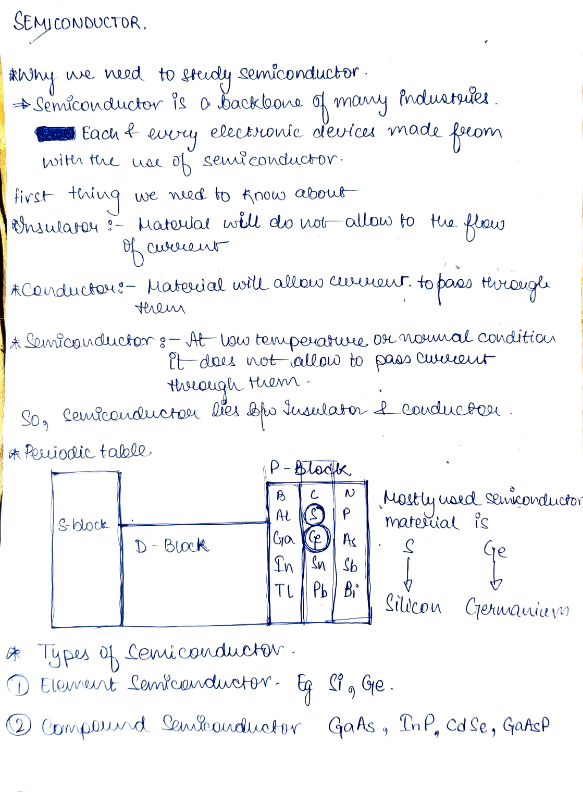 SEMICONDUCTOR.
*Why we need to study semiconductor.
→ Semiconductor is a backbone of many industries.
Each & every electronic devices made from
with the use of semiconductor.
first thing we need to know about
*Insulator :- Material will do not allow to the flow
of current
*Conductor:- Material will allow current. to pass through
them
* Semiconductor :- At low temperature or normal condition
it does not allow to pass current
through them.
So, Semiconductor lies b/w Insulator & conductor.
* Periodic table
P-Block
S-block
D-Block
B C N
Al S P
Ga Ge As
In Sn Sb
TL Pb Bi
Mostly used semiconductor
material is
S Ge
↓ ↓
Silicon Germanium
* Types of Semiconductor.
① Element Semiconductor- Eg Si, Ge.
② Compound Semiconductor GaAs, InP, CdSe, GaAsP